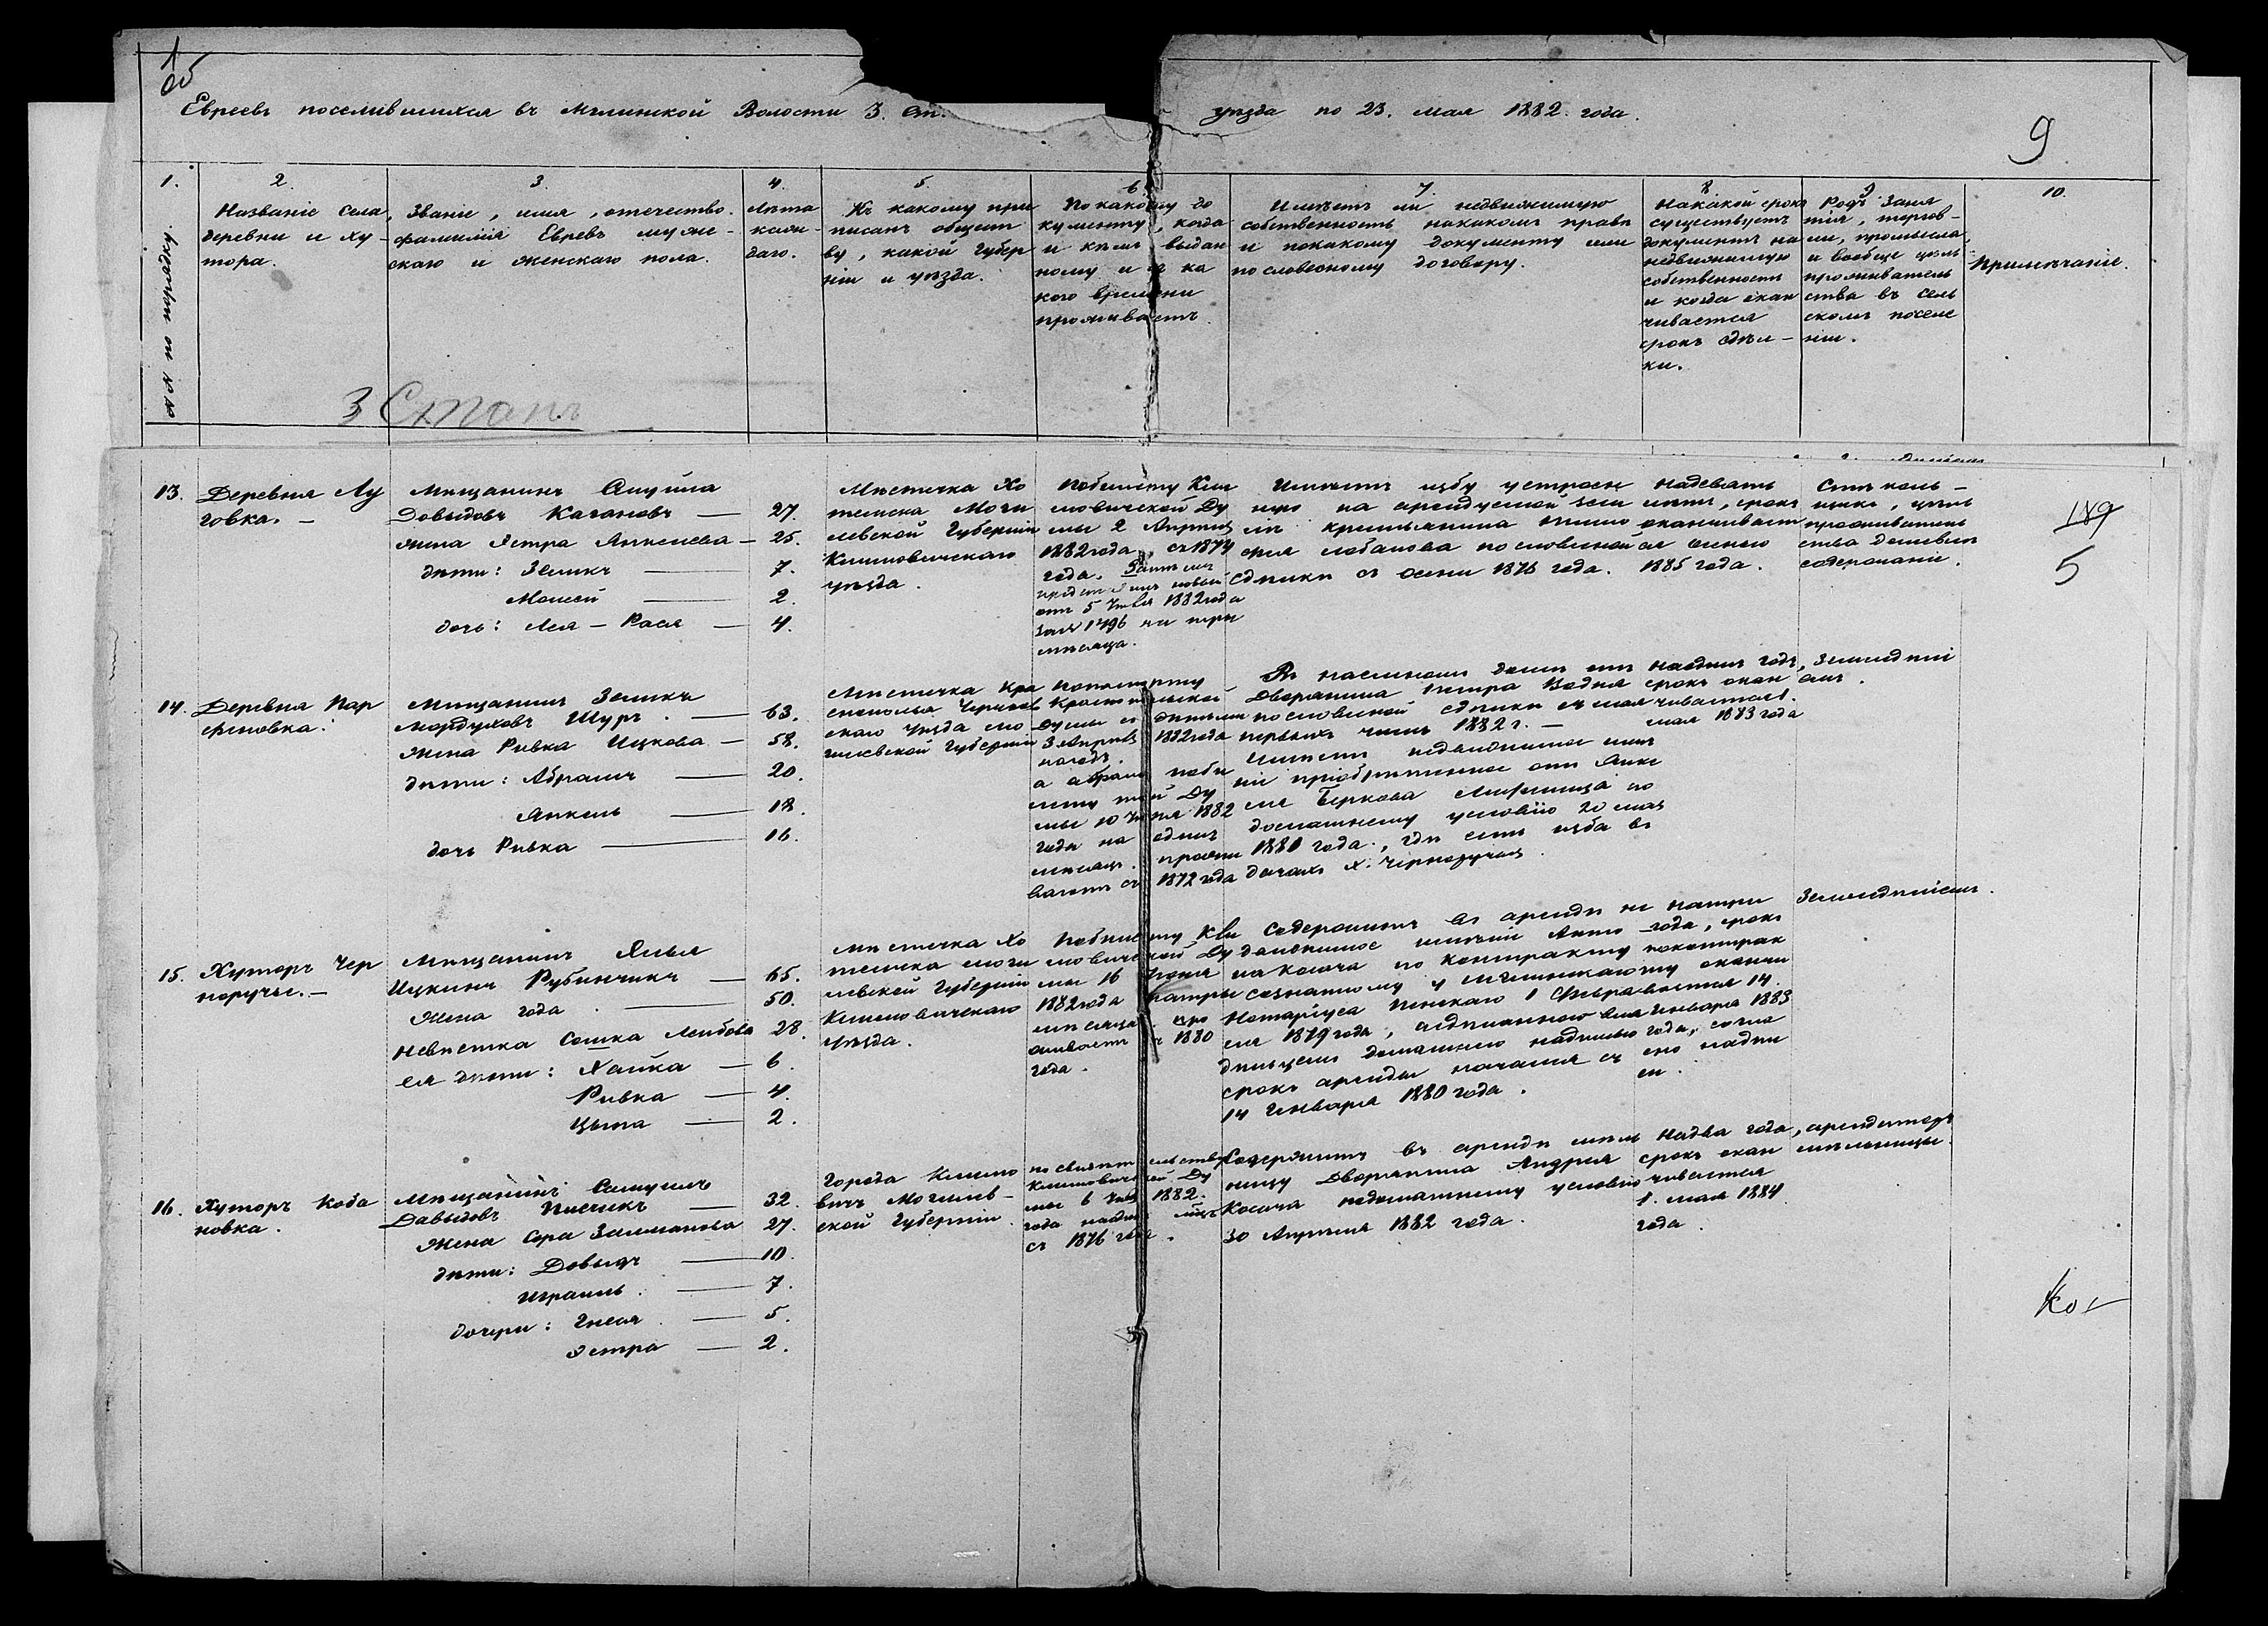 Евреевъ поселившихся въ Мглинской Волости 3. Ст. уѣзда по 23. мая 1882 года.
9
1.
№№ по порядку.
2.
Названіе села,
деревни и ху-
тора.
3.
Званіе, имя, отечество.
фамилія Евреевъ муже-
скаго и женскаго пола.
4.
Лѣта
каж-
даго.
5.
Къ какому при
писанъ общест
ву, какой Губер
ніи и уѣзда.
6
По какому до
кументу, когда
и кѣмъ выдан
ному и съ ка
кого времени
проживаетъ
7
Имѣетъ ли недвижимую
собственность накакомъ правѣ
и покакому документу или
по словесному договору.
8
На какой срокъ
существуетъ
документъ на
недвижимую
собственность
и когда окан
чивается
срокъ сдѣл-
ки.
9
Родъ заня
тія, торгов-
ли, промысла,
и вообще цѣль
проживатель
ства въ сель
скомъ поселе
ніи.
10.
Примѣчаніе.
3 Станъ
13.
Деревня Лу
говка. -
Мѣщанинъ Самуила
Довыдовъ Кагановъ — 27.
жена Эстра Янкелева — 25.
дѣти: Зеликъ — 7.
Моисей — 2.
дочь: Лея - Рася — 4.
Мѣстечка Хо
темска Моги
левской Губерніи
Климовичскаго
уѣзда.
Побилету Кли
мовичской Ду
мы 2 Апрѣля
1882 года, съ 1874
года.
новый
отъ 5 1882 года
за № 1496 на три
мѣсяца.
Имѣетъ избу устроен
ную на арендуемой зем
лѣ крестьянина
Лобанова по словесной
сдѣлки съ осени 1876 года.
Надевять
лѣтъ, срокъ
оканчивает
ся осенью
1885 года.
цѣль
проживатель
ства дешевле
содержаніе.
189
5
14.
Деревня Пар
феновка.
Мѣщанинъ Зеликъ
Мордуховъ Шуръ. — 63.
жена Ривка Ицкова — 58.
дѣти: Абрамъ — 20.
Янкель — 18.
дочь Ривка — 16.
Мѣстечка Кра
снополья Чериков
скаго уѣзда Мо
гилевской Губерніи
Попаспорту
Краснопольской
Думы съ дѣтьми
3 Апрѣля 1882 года
нагодъ.
а Абрамъ поби
лету той Ду
мы 10 1882
года на одинъ
мѣсяцъ. прожи
ваетъ съ 1872 года
Въ наемномъ домѣ отъ
дворянина Петра
по словесной сдѣлки съ мая
первыхъ чиселъ 1882 г. -
Имѣетъ недвижимое имѣ
ніе приобрѣтенное отъ Янке
ля Беркова по
домашнему условію 20 мая
1880 года, гдѣ есть изба въ
дачахъ х. Чернопучья
Наодинъ годъ,
срокъ окан
чивается 1.
мая 1883 года
Земледѣлі
емъ.
15.
Хуторъ Чер
норучье. -
Мѣщанинъ Хилья
Ицкинъ Рубинчикъ — 65.
жена года — 50.
невѣстка Сошка Лейбова 28.
ея дѣти: Хайка — 6.
Ривка — 4.
Цыпа — 2.
Мѣстечка Хо
темска Моги
левской Губерніи
Климовичскаго
уѣзда.
Побилету Кли
мовичской Ду
мы 16
1882 года натри
мѣсяца. про
живаетъ съ 1880
года.
Содержитъ въ арендѣ не
движимое имѣніе
на Косача по контракту
сознанному у Мглинскаго
Нотаріуса Пенскаго 1 Февра
ля 1879 года,
дѣльцемъ домашнею надписью
срокъ аренды начался съ
14 Января 1880 года.
натри
года, срокъ
поконтрак
ту оканчи
вается 14
Января 1883
года, согла
сно надпи
си.
Земледѣліемъ.
16.
Хуторъ Коба
новка.
Мѣщанинъ Самуилъ
Давыдовъ Писчикъ — 32.
жена Сора Залманова 27.
дѣти: Довыдъ — 10.
Израиль. — 7.
дочери: Гнеся — 5.
Эстра — 2.
Города Климо
вичъ Могилев-
ской Губерніи.
по свидѣтельству
Климовичской Ду
мы 6 1882.
года наодинъ мѣсц
съ 1876 года.
Содержитъ въ арендѣ мель
ницу дворянина Андрея
Косача подомашнему условію
30 Апрѣля 1882 года.
Надва года,
срокъ окан
чивается
1. мая 1884
года.
арендаторъ
мельницы.